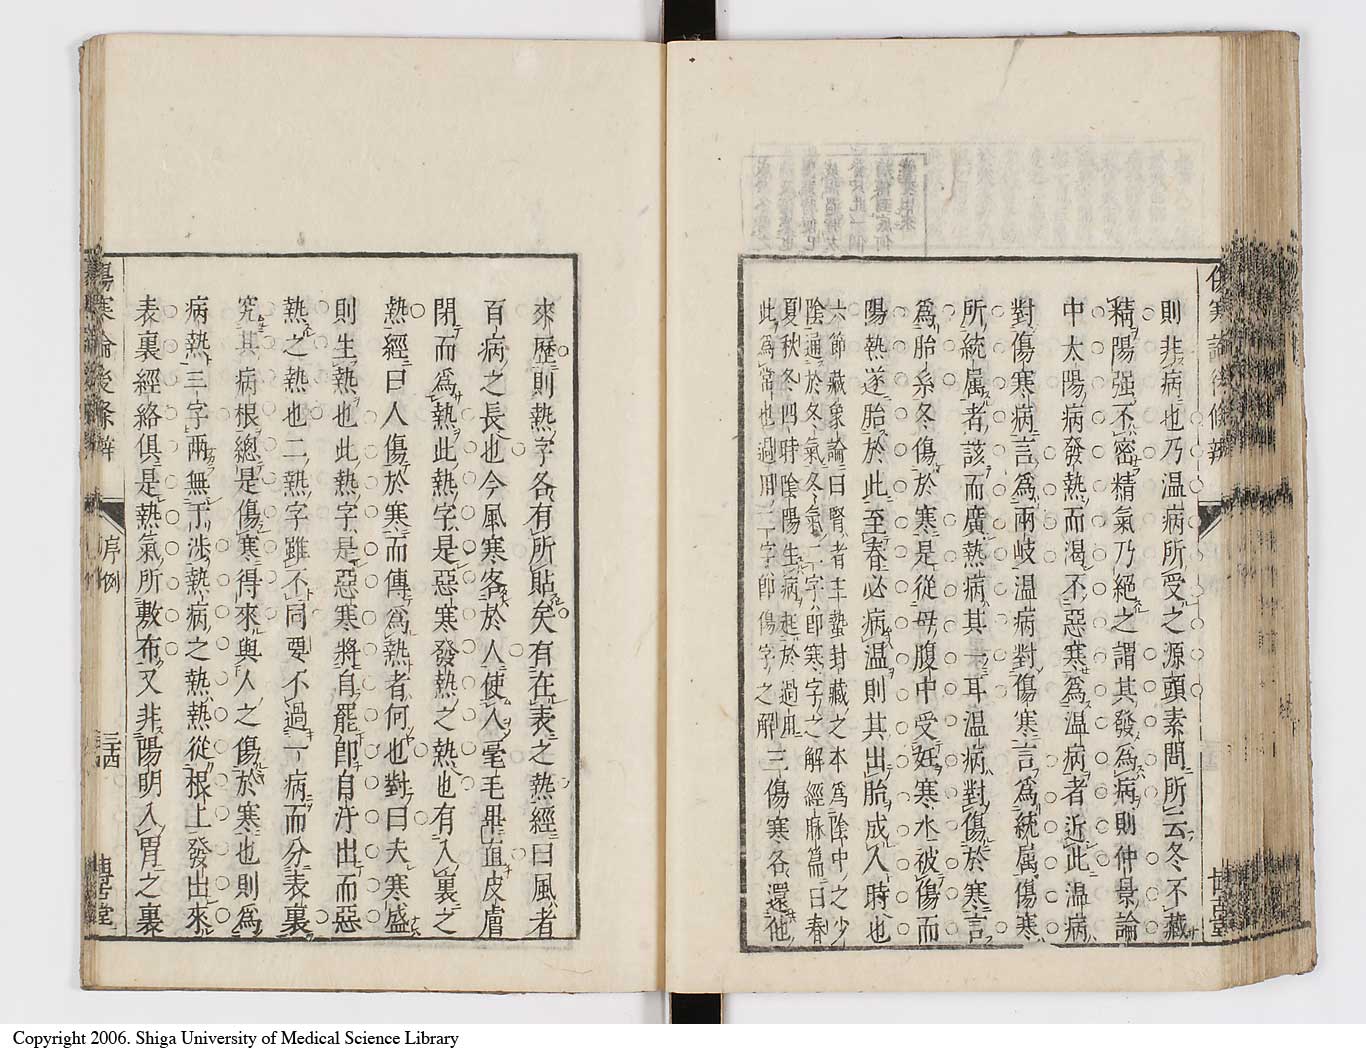 傷寒論後條辨
則非病也乃温病所受之源頭素問所云冬不藏
精陽强不密精氣乃絶之謂其發為病則仲景論
中太陽病發熱而渴不惡寒為温病者近此温病
對傷寒病言為兩岐温病對傷寒言為統属傷寒
所統属者該而廣熱病其一耳温病對傷於寒言
為胎系冬傷於寒是從母腹中受妊寒水被傷而
陽熱遂胎於此至春必病温則其出胎成人時也
六節藏象論曰腎者主蟄封藏之本為陰中之少
陰通於冬氣冬氣二字即寒字之解經脉篇曰春
夏秋冬四時陰陽生病起於過用
此為常也過用二字即傷字之解
三傷寒各還他
來歷則熱字各有所貼矣有在表之熱經曰風者
百病之長也今風寒客於人使人毫毛畢直皮膚
閉而為熱此熱字是惡寒發熱之熱也有入裏之
熱經曰人傷於寒而傳為熱者何也對曰夫寒盛
則生熱也此熱字是惡寒將自罷即自汗出而惡
熱之熱也二熱字雖不同要不過一病而分表裏
究其病根總是傷寒得來與人之傷於寒也則為
病熱三字兩無干涉熱病之熱熱從根上發出來
表裏經絡俱是熱氣所敷布又非陽明入胃之裏
傷寒論後條辨
序例
博古堂
Copyright 2006. Shiga University of Medical Science Library